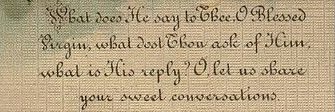 What does He say to Thee, O Blessed
Virgin, what dost Thou ask of Him,
what is His reply? O, let us share
your sweet conversations.